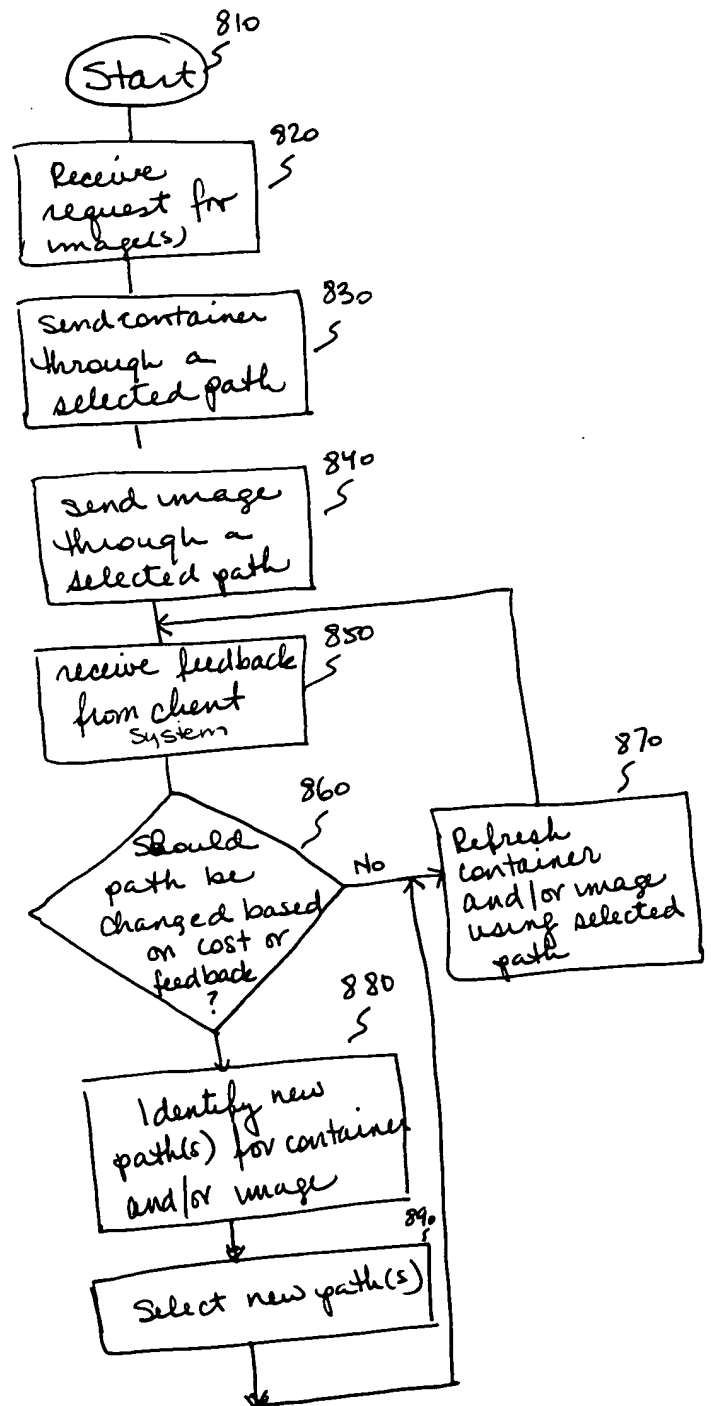 810
Start
820
Receive
request for
image(s)
830
send container
through a
selected path
840
send image
through a
selected path
850
receive feedback
from client
system
860
Should
path be
changed based
on cost or
feedback
?
No
870
Refresh
container
and/or image
using selected
path
880
Identify new
path(s) for container
and/or image
890
Select new path(s)